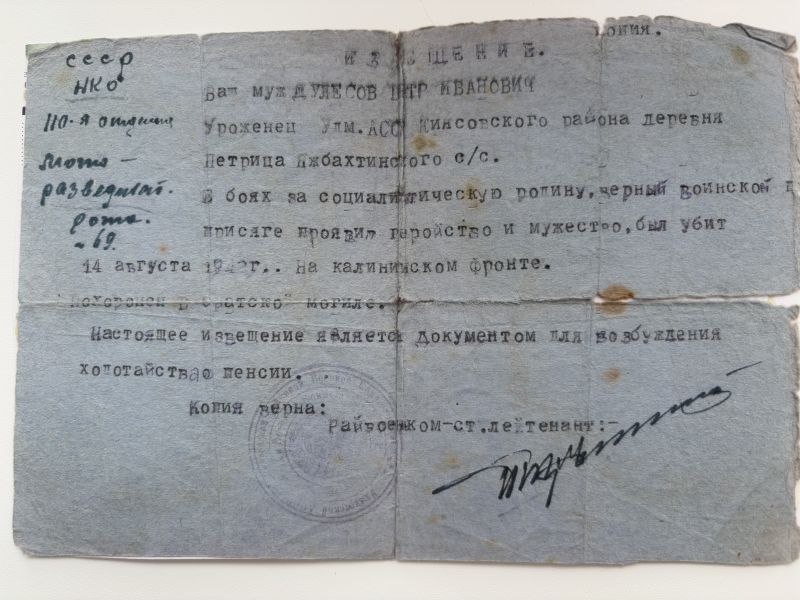 Копия.
СССР
НКО
110-я отдельная
Мото-
разведыват.
рота.
№ 69.
ИЗВЕЩЕНИЕ.
Ваш муж ДУЛЕСОВ ПЕТР ИВАНОВИЧ
Уроженец Удм.АССР Киясовского района деревня
Петрица Ижбахтинского с/с.
В боях за социалистическую родину, верный воинской
присяге проявил геройство и мужество, был убит
14 августа 1942г.. На калининском фронте.
Похоронен в братской могиле.
Настоящее извещение является документом для возбуждения
хопотайства о пенсии.
Копия верна:
Райвоенком-ст.лейтенант:-